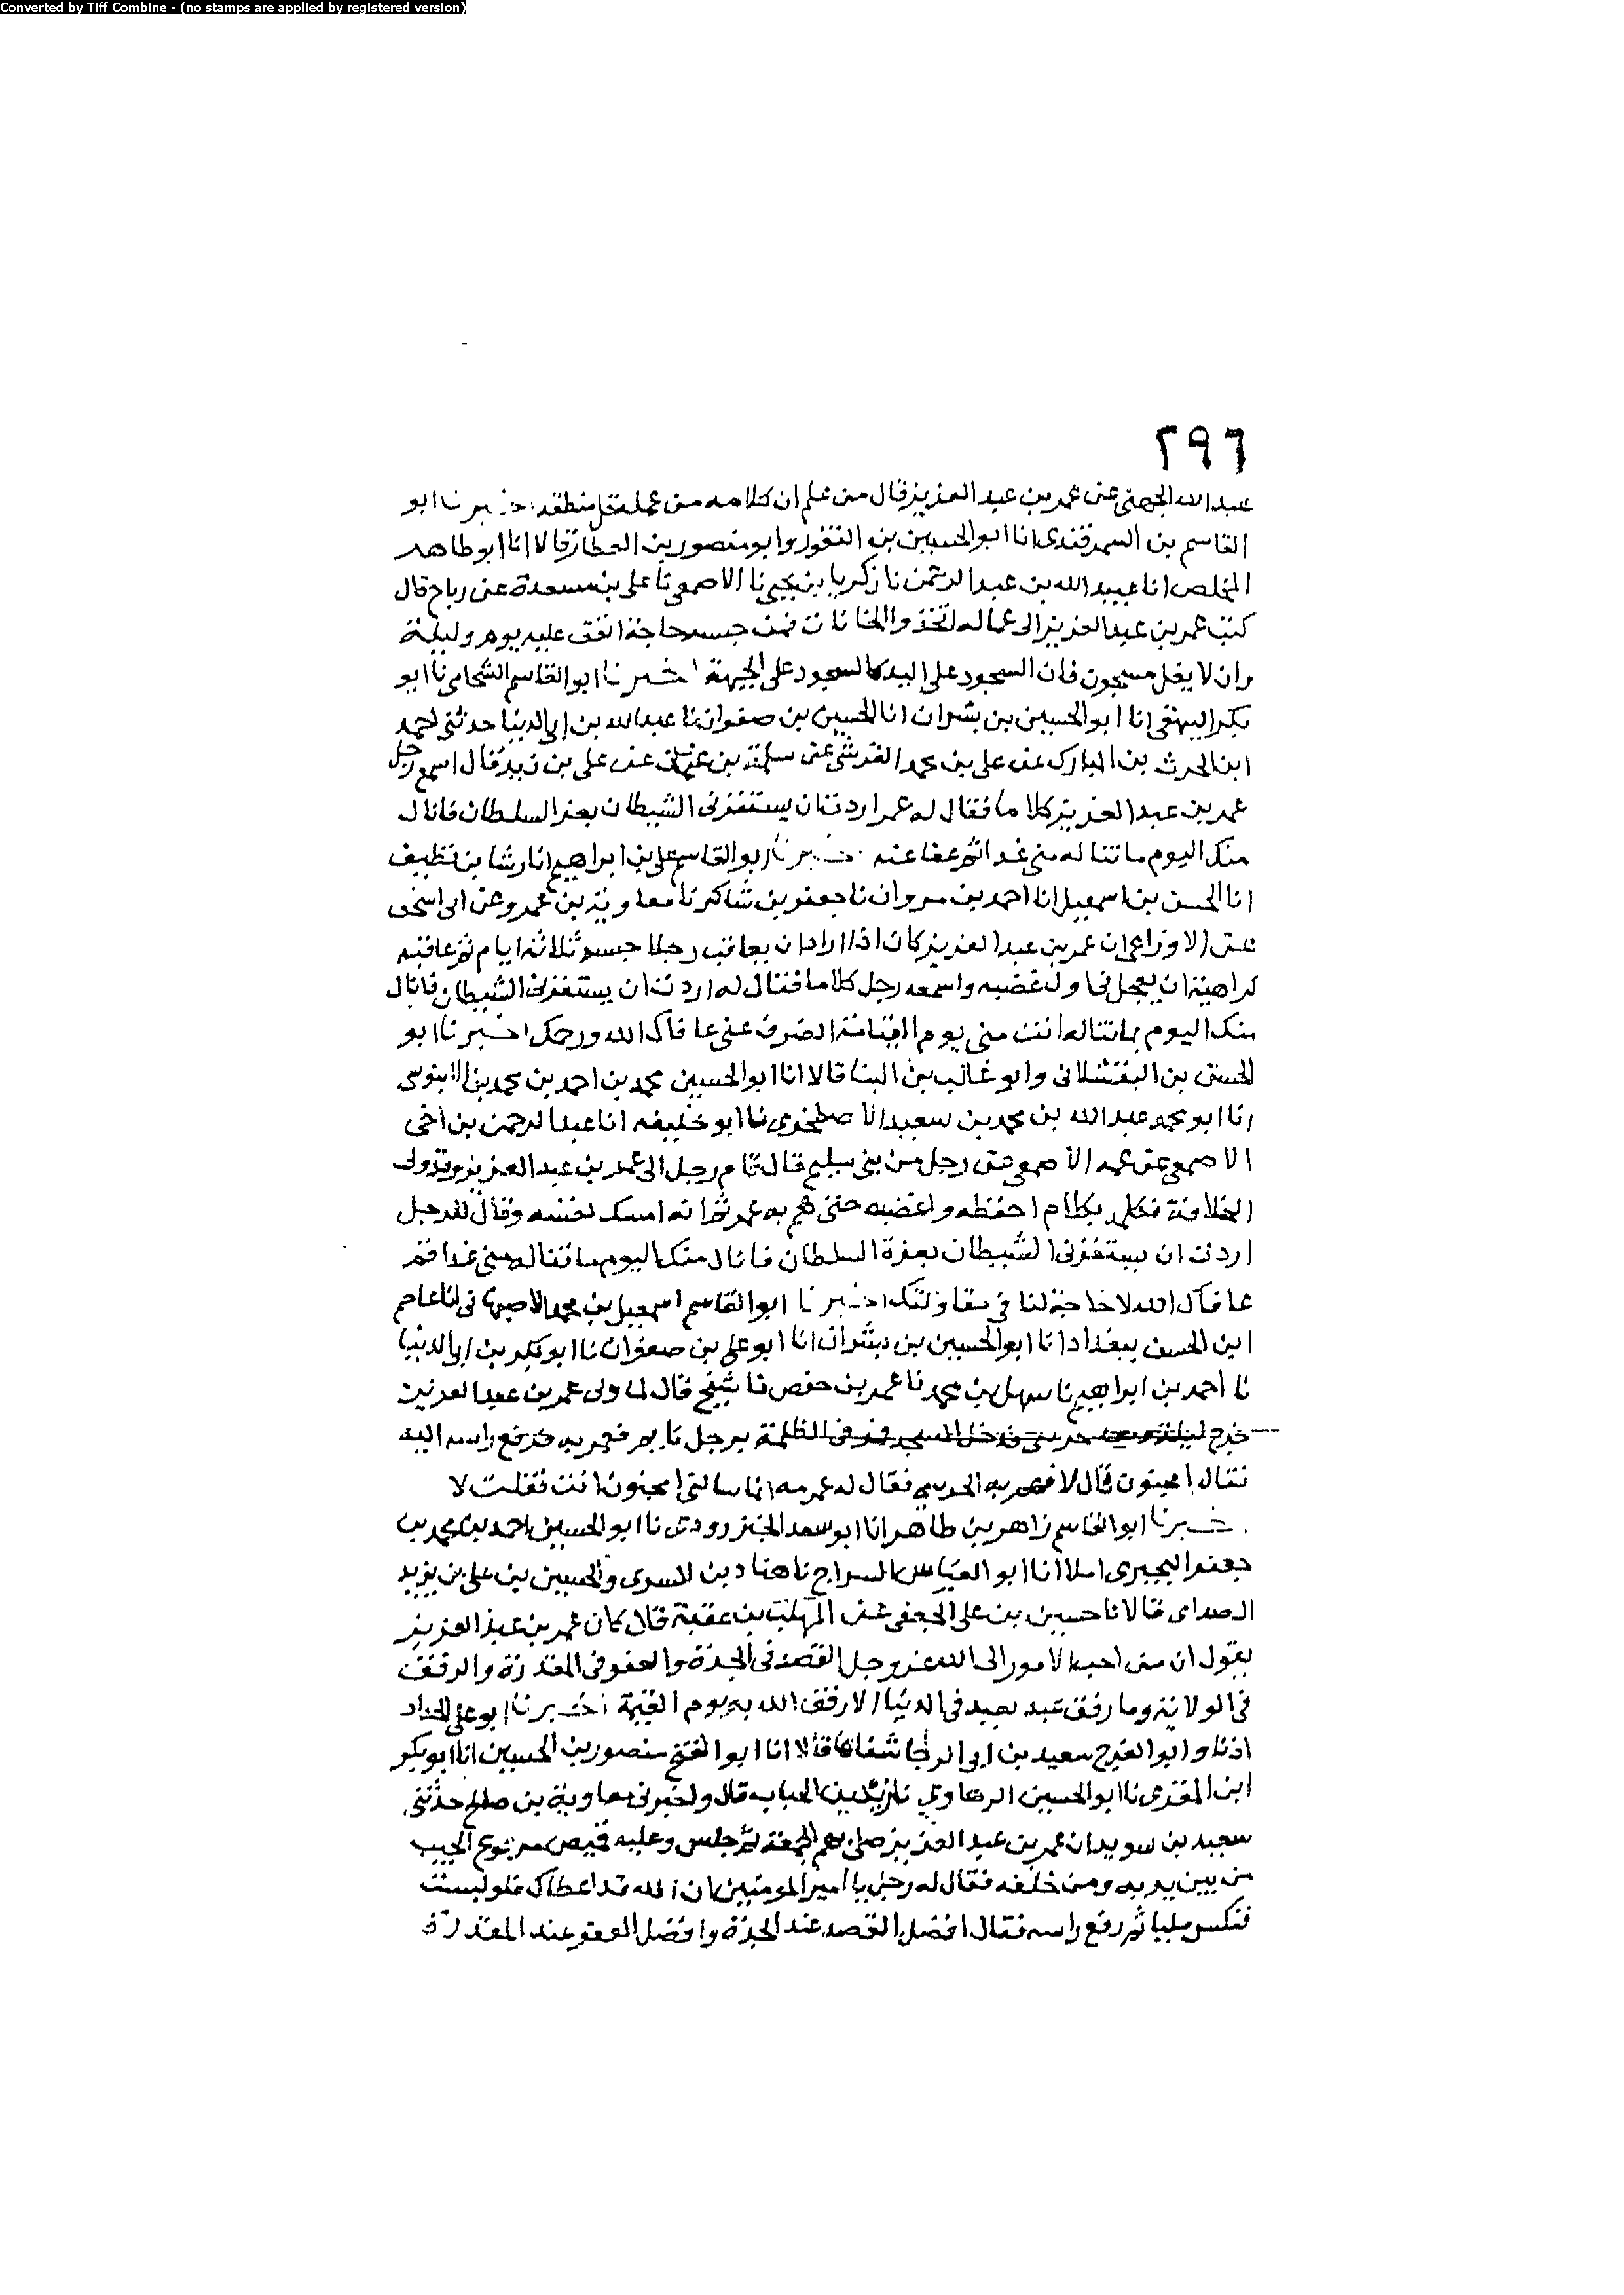 Converted by Tiff Combine - (no stamps are applied by registered version)
٢٩٦
عبد الله الجهني عن عمر بن عبد العزيز قال من علم ان كلامه من عمله قل منطقه اخبرنا ابو
القاسم بن السمرقندي انا ابو الحسين بن النقور وابو منصور بن العطار قالا انا ابو طاهر
المخلص انا عبيد الله بن عبد الرحمن نا زكريا بن يحيى نا الاصمعي نا علي بن مسعدة عن رباح قال
كتب عمر بن عبد العزيز الى عماله لا تخذوا الخانات فمن حبسه حاجة انفق عليه يوم وليلة
وان لا يغل مسجون فان السجود على اليد كالسجود على الجبهة اخبرنا ابو القاسم الشحامي نا ابو
بكر البيهقي انا ابو الحسين بن بشران انا الحسين بن صفوان نا عبد الله بن ابي الدنيا حدثني احمد
ابن الحرث بن المبارك عن علي بن محمد القرشي عن سلمة بن عثمان عن علي بن زيد قال اسمع رجل
عمر بن عبد العزيز كلاما فقال له عمر اردت ان يستفزني الشيطان بعز السلطان فانال
منك اليوم ما تناله مني غدا ثم عفا عنه اخبرنا ابو القاسم علي بن ابراهيم انا رشا بن نظيف
انا الحسن بن اسمعيل انا احمد بن مروان نا جعفر بن شاكر نا معاوية بن عمرو عن ابي اسحق
عن الاوزاعي ان عمر بن عبد العزيز كان اذا اراد ان يعاقب رجلا حبسه ثلاثة ايام ثم عاقبه
كراهية ان يعجل في اول غضبه واسمعه رجل كلاما فقال له اردت ان يستفزني الشيطان فانال
منك اليوم ما تناله انت مني يوم القيامة انصرف عني عافاك الله ورحمك اخبرنا ابو
الحسن بن البقشلاني وابو غالب بن البنا قالا انا ابو الحسين محمد بن احمد بن محمد بن الابنوسي
انا ابو محمد عبد الله بن محمد بن سعيد الاصطخري نا ابو خليفه انا عبد الرحمن بن اخي
الاصمعي عن عمه الاصمعي عن رجل من بني سليم قال قام رجل الى عمر بن عبد العزيز وقد ولي
الخلافة فكلمه بكلام احفظه واغضبه حتى هم به عمر ثم انه امسك لنفسه وقال للرجل
اردت ان يستفزني الشيطان بعزة السلطان فانال منك اليوم ما تناله مني غدا قم
عافاك الله لا حاجة لنا في مقاولتك اخبرنا ابو القاسم اسمعيل بن محمد الاصبهاني انا عاصم
ابن الحسن ببغداد انا ابو الحسين بن بشران انا ابو علي بن صفوان نا ابو بكر بن ابي الدنيا
نا احمد بن ابراهيم نا سهل بن محمد نا عمر بن حفص نا شيخ قال لما ولى عمر بن عبد العزيز
خرج ليلة ومعه حرسي فدخل المسجد فمر في الظلمة برجل نايم فعثر به فرفع راسه اليه
فقال امجنون قال لا فهم به الحرسي فقال له عمر مه انما سالني امجنون انت فقلت لا
اخبرنا ابو القاسم زاهر بن طاهر انا ابو سعد الجنزرودي نا ابو الحسين احمد بن محمد بن
جعفر البحيري املا انا ابو العباس السراج نا هناد بن السري والحسين بن علي بن يزيد
الصداي قالا نا حسين بن علي الجعفي عن المهلب بن عقبة قال كان عمر بن عبد العزيز
يقول ان من احب الامور الى الله عز وجل القصد في الجدة والعفو في المقدرة والرفق
في الولاية وما رفق عبد بعبد في الدنيا الا رفق الله به يوم القيمة اخبرنا ابو علي الحداد
اذنا وابو الفرج سعيد بن ابي الرجا شفاها قالا انا ابو الفتح منصور بن الحسين انا ابو بكر
ابن المقري نا ابو الحسين الرهاوي نا زيد بن الحباب قال واخبرني معاوية بن صالح حدثني
سعيد بن سويد ان عمر بن عبد العزيز صلى بهم الجمعة ثم جلس وعليه قميص مرقوع الجيب
من بين يديه ومن خلفه فقال له رجل يا امير المومنين ان الله قد اعطاك فلو لبست
فنكس مليا ثم رفع راسه فقال افضل القصد عند الجدة وافضل العفو عند المقدرة